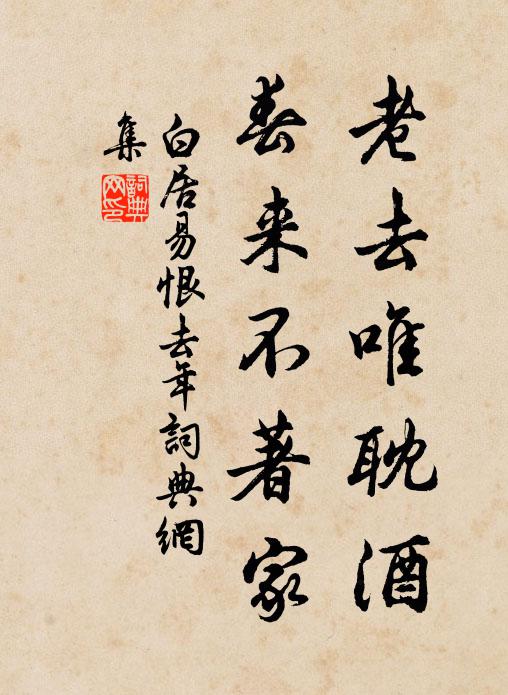 老去唯耽酒
春来不著家
白居易恨去年詞典網
集
詞典
网印